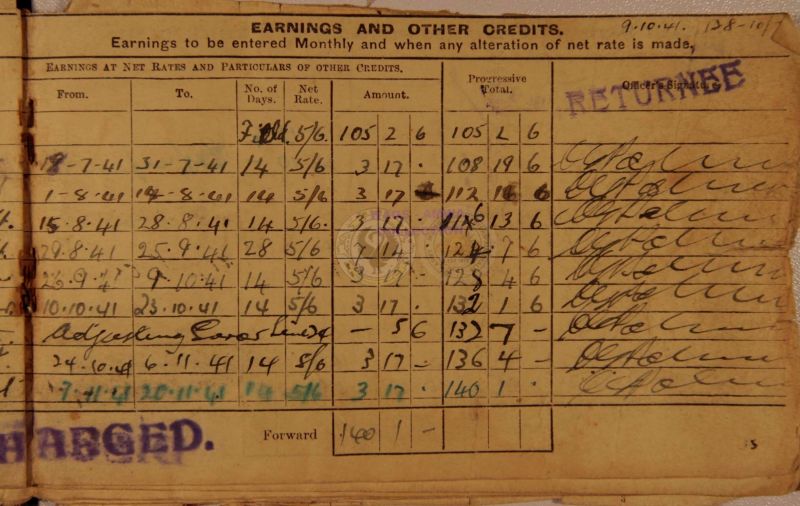 9.10.41. 128-10/7
EARNINGS AND OTHER CREDITS.
Earnings to be entered Monthly and when any alteration of net rate is made,
EARNINGS AT NET RATES AND PARTICULARS OF OTHER CREDITS.
Progressive Total.
Officer's Signature.
RETURNEE
From. To. No. of Days. Net Rate. Amount.
5/6 105 2 6 105 2 6
18-7-41 31-7-41 14 5/6 3 17 . 108 19 6
1-8-41 14-8-41 14 5/6 3 17 112 16 6
15.8.41 28.8.41 14 5/6. 3 17 . 116 13 6
29.8.41 25.9.41 28 5/6 7 14 . 124 7 6
26.9.41 9.10.41 14 5/6 3 17 . 128 4 6
10.10.41 23.10.41 14 5/6 3 17 . 132 1 6
Adjusting - 5 6 132 7 -
24.10.41 6.11.41 14 5/6 3 17 - 136 4 -
7.11.41 20.11.41 14 5/6 3 17 . 140 1 .
Forward 140 1 -
HARGED.